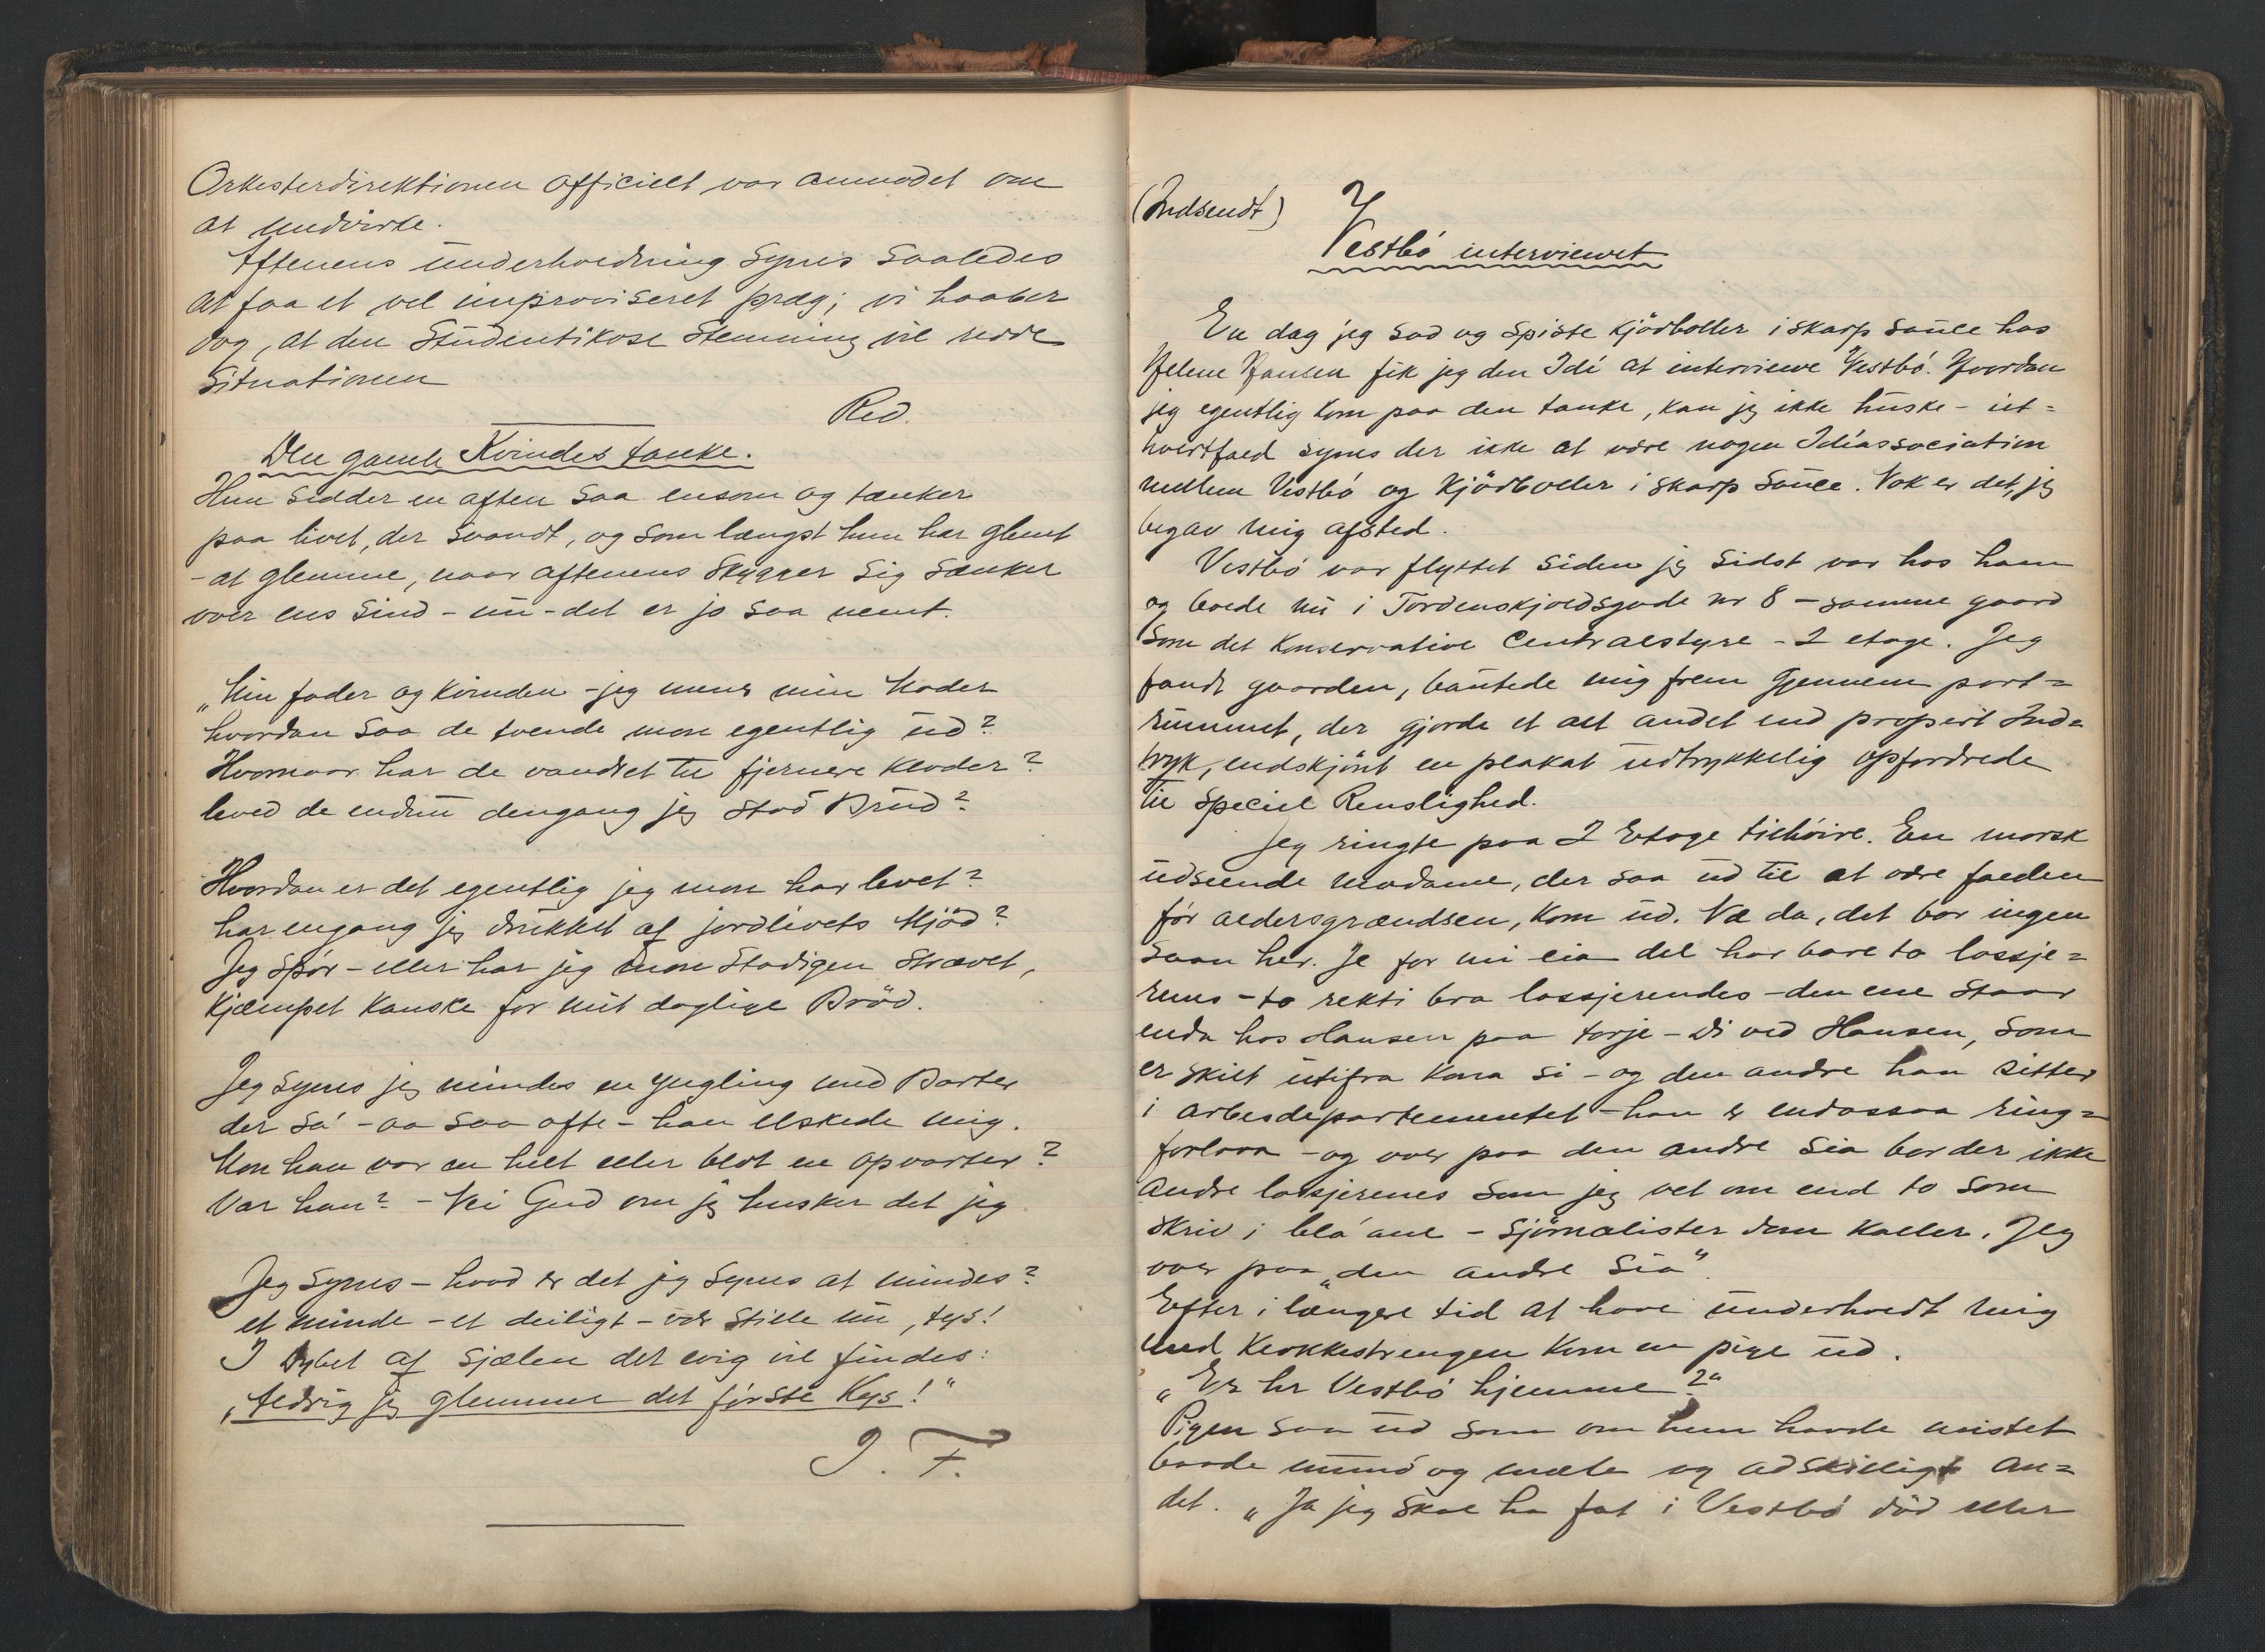 Orkesterdirektionen officielt var anmodet om
at medvirke.
Aftenens underholdning synes saaledes
at faa et vel improviseret præg; vi haaber
dog, at den studentikose stemning vil redde
situationen
Red.
Den gamle Kvindes tanke.
Hun sidder en aften saa ensom og tænker
paa livet, der svandt, og som længst hun har glemt
- at glemme, naar aftenens skygger sig sænker
over ens sind - nu - det er jo saa nemt.
„Min fader og kvinden - jeg mener min Moder
hvordan saa de tvende mon egentlig ud?
Hvornaar har de vandret til fjernere kloder?
leved de endnu dengang jeg stod Brud?
Hvordan er det egentlig jeg mon har levet?
har engang jeg drukket af jordlivets Mjöd?
Jeg spör - eller har jeg mon stadigen strævet,
kjæmpet kanske for mit daglige Bröd.
Jeg synes jeg mindes en yngling med Barter
der sa' - aa saa ofte - han elskede mig.
Mon han var en helt eller blot en opvarter?
Var han? - Nei Gud om jeg husker det jeg
Jeg synes - hvad er det jeg synes at mindes?
et minde - et deiligt - vær stille nu, tys!
I Dybet af sjælen det evig vil findes:
„Aldrig jeg glemmer det förste Kys!"
J. F.
(Indsendt)
Vestbö interviewet
En dag jeg sad og spiste kjödboller i skarp sauce hos
Helene Hansen fik jeg den Idé at interviewe Vestbö. Hvordan
jeg egentlig kom paa den tanke, kan jeg ikke huske - iet=
hvertfald synes der ikke at være nogen Idéassociation
mellem Vestbö og kjödboller i skarp sauce. Nok er det, jeg
begav mig afsted.
Vestbö var flyttet siden jeg sidst var hos ham
og boede nu i Tordenskjoldsgade nr 8 - samme gaard
som det konservative Centralstyre - 2 etage. Jeg
fandt gaarden, bautede mig frem gjennem port=
rummet, der gjorde et alt andet end propert Ind=
tryk, endskjönt en plakat udtrykkelig opfordrede
til speciel Renslighed.
Jeg ringte paa 2 Etage tilhöire. En morsk
udseende madame, der saa ud til at være falden
för aldersgrændsen, kom ud. Næ da, det bor ingen
saan her. Je for mi eia del har bare to lossje=
rens - to rekti bra lossjerendes - den ene staar
enda hos Hansen paa torje - Di ved Hansen, som
er skilt utifra kona si - og den andre han sitter
i arbesdepartementet - han er endassaa ring=
forlova - og over paa den andre sia bor der ikke
andre lossjerenes som jeg vet om end to som
skriv i bla'ane - sjörnalister dem kaller. Jeg
over paa „den andre sia".
Efter i længere tid at have underholdt mig
med klokkestrengen kom en pige ud.
„Er hr Vestbö hjemme?"
Pigen saa ud som om hun havde mistet
baade mund og mæle og adskilligt an=
det. „Ja jeg skal ha fat i Vestbö död eller